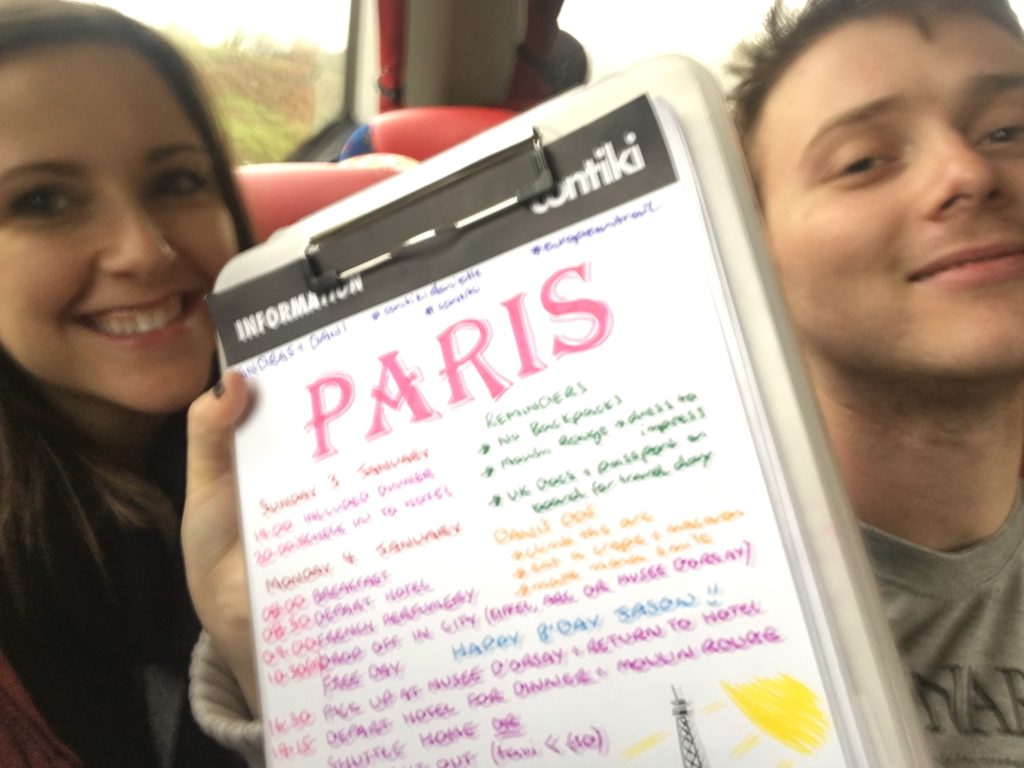 contiki
INFORMATION
#contiki
PARIS
SUNDAY 3 JANUARY
19:00 INCLUDED DINNER
20:00 CHECK IN TO HOTEL
MONDAY 4 JANUARY
08:00 BREAKFAST
08:30 DEPART HOTEL
09:00 FRENCH PERFUMERY
10:30 DROP OFF IN CITY (EIFFEL, ARC OR MUSEE D'ORSAY)
FREE DAY
HAPPY B'DAY JASON!!
16:30 PICK UP AT MUSEE D'ORSAY + RETURN TO HOTEL
18:15 DEPART HOTEL FOR DINNER + MOULIN ROUGE
SHUTTLE HOME OR
OUT (TAXI < €10)
REMINDERS
→ NO BACKPACKS
→ MOULIN ROUGE = DRESS TO
IMPRESS
→ UK DOCS + PASSPORT ON
BOARD FOR TRAVEL DAY
DANI'S DOV
CLIMB THE ARC
EAT A CREPE + MACARON
MAKE MONA SMILE
NAR